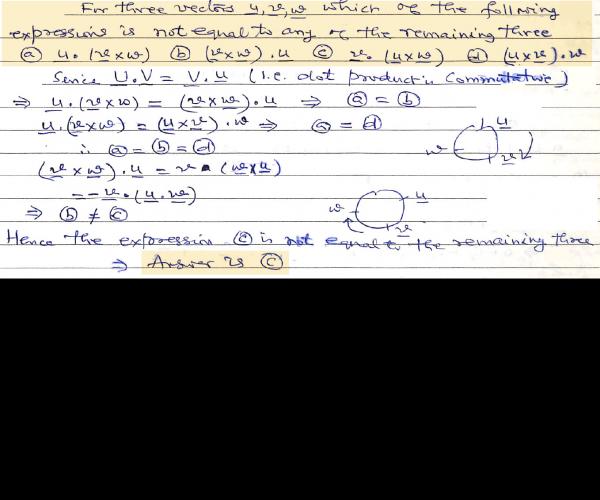 For three vectors u, v, w which of the following
expressions is not equal to any of the remaining three
ⓐ u. (v×w) ⓑ (v×w). u ⓒ v. (u×w) ⓓ (u×v). w
Sence U.V = V.u (i.e. dot product is Commutative)
⇒ u.(v×w) = (v×w). u ⇒ ⓐ = ⓑ
u.(v×w) = (u×v). w ⇒ ⓐ = ⓓ
u
w
v
∴ ⓐ = ⓑ = ⓓ
(v×w). u = v. (w×u)
= -v. (u.w)
u
w
v
⇒ ⓑ ≠ ⓒ
Hence the expression ⓒ is not equal to the remaining three
⇒ Answer is ⓒ